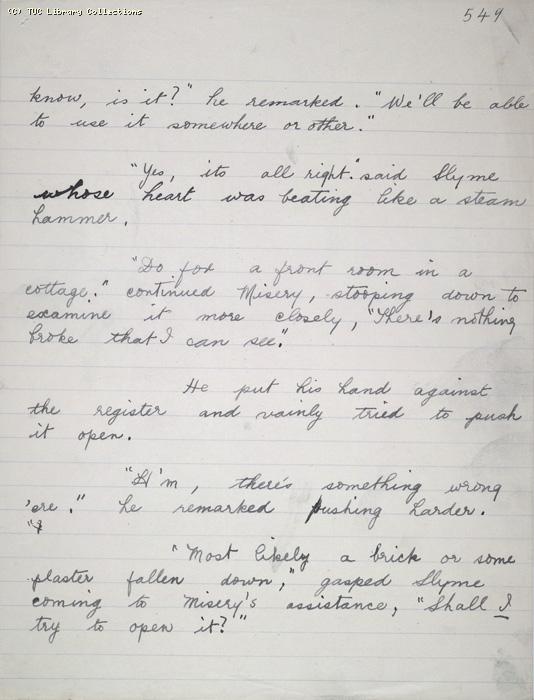 (C) TUC Library Collections
549
know, is it?" he remarked. "We'll be able
to use it somewhere or other."
"Yes, its all right." said Slyme
whose heart was beating like a steam
hammer.
"Do for a front room in a
cottage." continued Misery, stooping down to
examine it more closely, "There's nothing
broke that I can see".
He put his hand against
the register and vainly tried to push
it open.
"H'm, there's something wrong
'ere." he remarked pushing harder.
"Most likely a brick or some
plaster fallen down," gasped Slyme
coming to Misery's assistance, "Shall I
try to open it?"